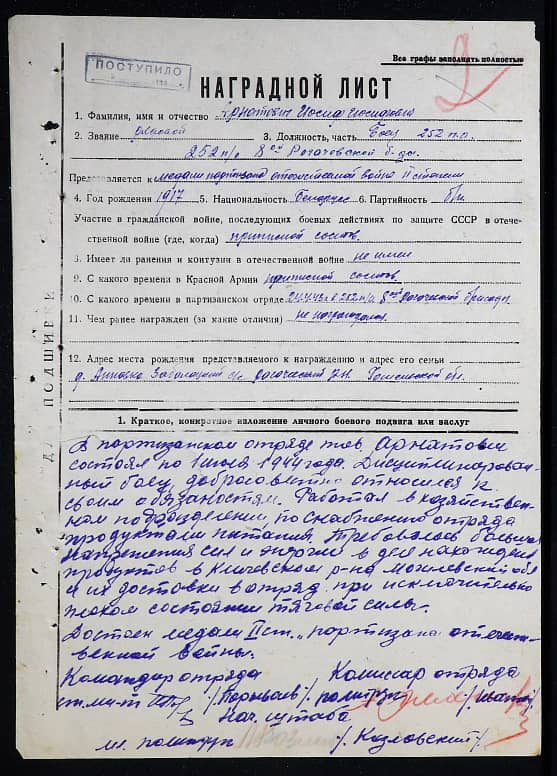 2
Все графы заполнять полностью
ПОСТУПИЛО
НАГРАДНОЙ ЛИСТ
1. Фамилия, имя и отчество Арнатович Иосиф Иосифович
2. Звание рядовой 3. Должность, часть Боец 252 п.о.
252 п/о 8ой Рогачевской б-ды
Представляется к медали партизана отечественной войны II степени
4. Год рождения 1917 5. Национальность беларус 6. Партийность б/п
Участие в гражданской войне, последующих боевых действиях по защите СССР в отече-
ственной войне (где, когда) приписной состав
8. Имеет ли ранения и контузии в отечественной войне не имеет
9. С какого времени в Красной Армии приписной состав
10. С какого времени в партизанском отряде в 252 п/о 8ой Рогачевской бригады
11. Чем ранее награжден (за какие отличия) не награждался
12. Адрес места рождения представляемого к награждению и адрес его семьи
д. Анновка с/с Рогачевский р-н Гомельской обл.
ДЛЯ ПОДШИВКИ
1. Краткое, конкретное изложение личного боевого подвига или заслуг
В партизанском отряде тов. Арнатович
состоял по 1 июля 1944 года. Дисциплинирован-
ный боец, добросовестно относился к
своим обязаностям. Работал в хозяйствен-
ном подразделении, по снабжению отряда
продуктами питания. Требовалось большое
напряжения сил и энергии в деле нахождения
продуктов в Кличевском р-на Могилевской обл
и их доставки в отряд при исключительно
плохом состоянии тяговой силы.
Достоен медали II ст. "партизана отечест-
венной войны.
Командир отряда Комиссар отряда
ст. л-т политрук
Нач. штаба
мл. политрук /Козловский/